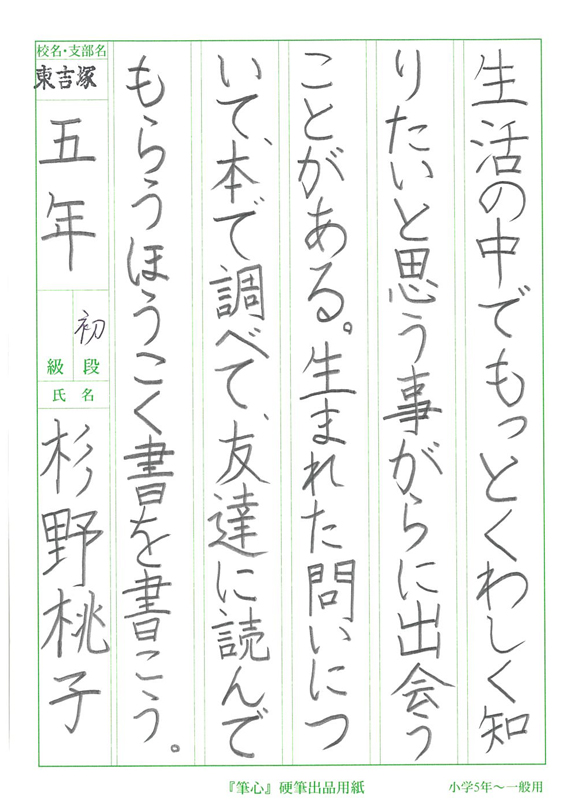 生活の中でもっとくわしく知
りたいと思う事がらに出会う
ことがある。生まれた問いにつ
いて、本で調べて、友達に読んで
もらうほうこく書を書こう。
校名・支部名
東吉塚
五年
初
段
級
氏名
杉野桃子
『筆心』硬筆出品用紙
小学5年～一般用